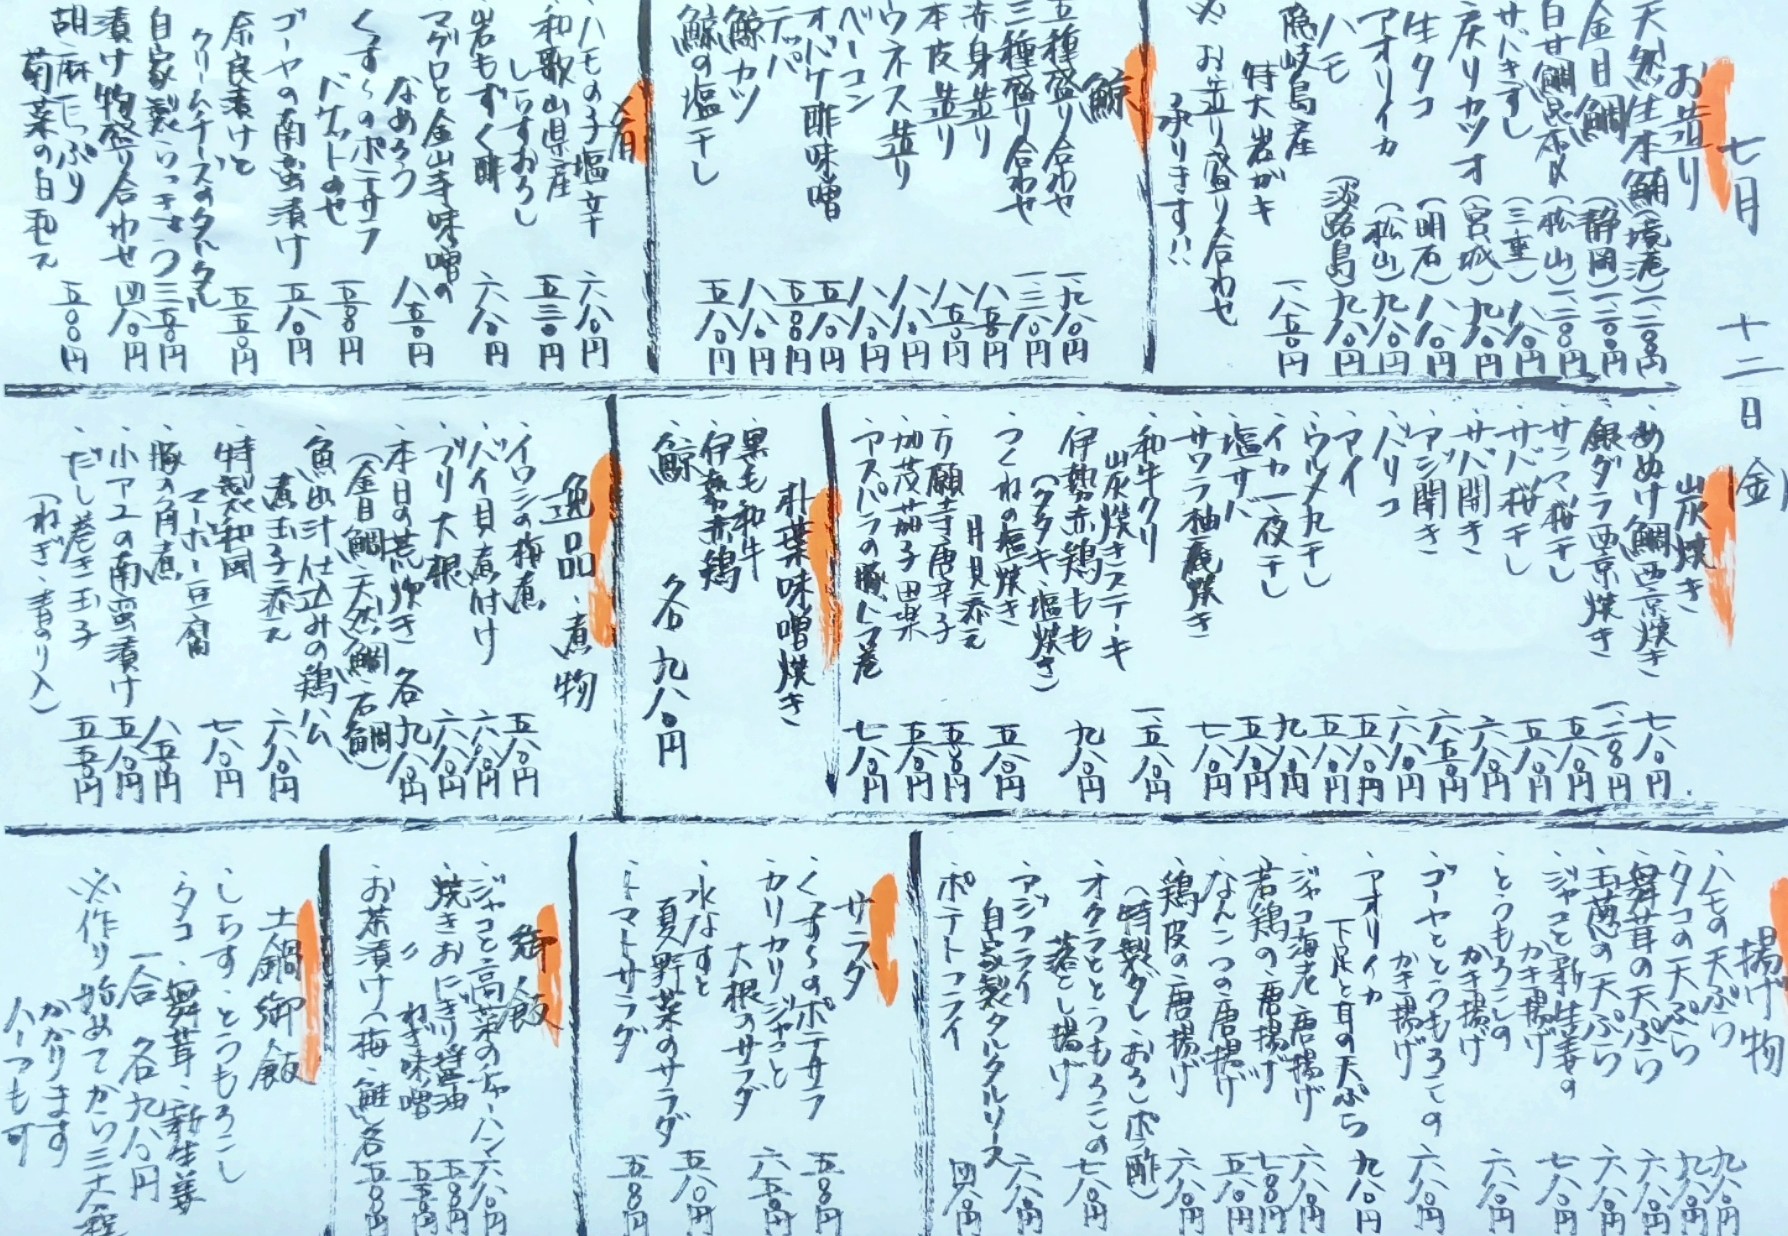 七月 十二日 金
お造り
・天然生本鮪(境港)一、二〇〇円
・金目鯛(静岡)一、二〇〇円
・白甘鯛昆布〆(松山)一、二〇〇円
・サバきずし(三重)八八〇円
・戻りカツオ(宮城)九八〇円
・生タコ(明石)八八〇円
・アオリイカ(松山)九八〇円
・ハモ(淡路島)九八〇円
・隠岐島産
特大岩がき 一、八五〇円
※お造り盛り合わせ
承ります!!
鯨
・五種盛り合わせ 一、九八〇円
・三種盛り合わせ 一、三八〇円
・赤身造り 八五〇円
・本皮造り 八五〇円
・ウネス造り 八八〇円
・ベーコン 八八〇円
・オバケ酢味噌 五八〇円
・テッパ 五五〇円
・鯨カツ 八八〇円
・鯨の塩干し 五八〇円
肴
・ハモの子塩辛 六八〇円
・和歌山県産
しらすおろし 五三〇円
・岩もずく酢 六八〇円
・マグロと金山寺味噌の
なめろう 八五〇円
・くずしのポテサラ
バゲットのせ 五五〇円
・ゴーヤの南蛮漬け 五八〇円
・奈良漬けと
クリームチーズのタルタル 五五〇円
・自家製らっきょう 三五〇円
・漬け物盛り合わせ 四八〇円
・胡麻たっぷり
菊菜の白和え 五〇〇円
炭焼き
・あぬけ鯛西京焼き 七八〇円
・銀ダラ西京焼き 一、二〇〇円
・サンマ桜干し 五八〇円
・サバ桜干し 五八〇円
・サバ開き 六八〇円
・アジ開き 六五〇円
・バリコ 六八〇円
・アイ 五八〇円
・ウルメ丸干し 五八〇円
・イカ一夜干し 九八〇円
・塩サバ 五五〇円
・サワラ柚庵焼き 七八〇円
・和牛クリ
炭焼きステーキ 一、五八〇円
・伊勢赤鶏もも
(タタキ・塩焼き) 九八〇円
・つくねの塩焼き
月見添え 五八〇円
・万願寺唐辛子 五五〇円
・加茂茄子田楽 五五〇円
・アスパラの豚バラ巻 七八〇円
朴葉味噌焼き
・黒毛和牛
・伊勢赤鶏
・鯨 各九八〇円
逸品・煮物
・イワシの梅煮 五八〇円
・バイ貝煮付け 六八〇円
・ブリ大根 六八〇円
・本日の荒炊き 各九八〇円
(金目鯛・天然鯛・石鯛)
・魚出汁仕立みの鶏公
煮玉子添え 六八〇円
・特製和風
マーボー豆腐 七八〇円
・豚の角煮 八五〇円
・小アユの南蛮漬け 五八〇円
・だし巻き玉子 五五〇円
(ねぎ、青のり入)
揚げ物
・ハモの天ぷら 九八〇円
・タコの天ぷら 九八〇円
・舞茸の天ぷら 六八〇円
・玉葱の天ぷら 六八〇円
・ジャコと新生姜の
かき揚げ 七八〇円
・とうもろこしの
かき揚げ 六八〇円
・ゴーヤととうもろこしの
かき揚げ 六八〇円
・アオリイカ
下足と耳の天ぷら 九八〇円
・ジャコ海老唐揚げ 六八〇円
・若鶏の唐揚げ 七八〇円
・なんこつの唐揚げ 五八〇円
・鶏皮の唐揚げ 六八〇円
(特製ダし、おろしポン酢)
・オクラととうもろこしの
落とし揚げ 七八〇円
・アジフライ
自家製タルタルソース 六八〇円
・ポテトフライ 四八〇円
サラダ
・くずしのポテサラ 五五〇円
・カリカリジャコと
大根のサラダ 六五〇円
・水なすと
夏野菜のサラダ 五八〇円
・トマトサラダ 五五〇円
御飯
・ジャコと高菜のチャーハン 六八〇円
・焼きおにぎり醤油 五五〇円
〃 ねぎ味噌 五五〇円
・お茶漬け(梅・鮭)各五五〇円
土鍋御飯
・しらす・とうもろこし
・タコ・舞茸・新生姜
一合 各九八〇円
※作り始めてから三十分程
かかります
ハーフも可